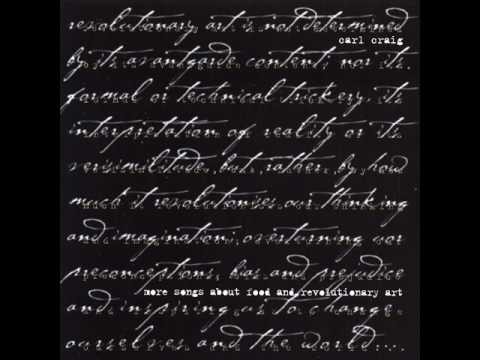 revolutionary art is not determined
carl craig
by its avantgarde content, nor its
formal or technical trickery, its
interpretation of reality or its
verisimilitude, but, rather, by, how
much it revolutionises our thinking
and imagination; overturning our
preconceptions, bias and prejudice
more songs about food and revolutionary art
and inspiring us to change
ourselves and the world....